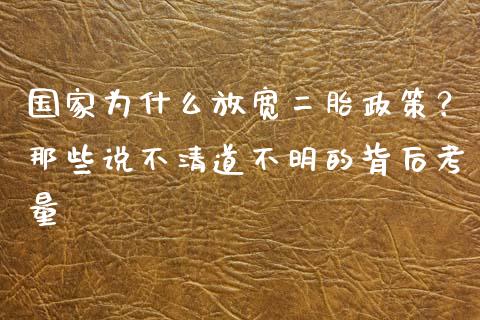 国家为什么放宽二胎政策？
那些说不清道不明的背后考
量